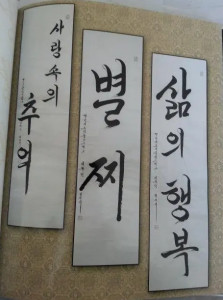 사랑 속의
추억
별
찌
삶의
행복